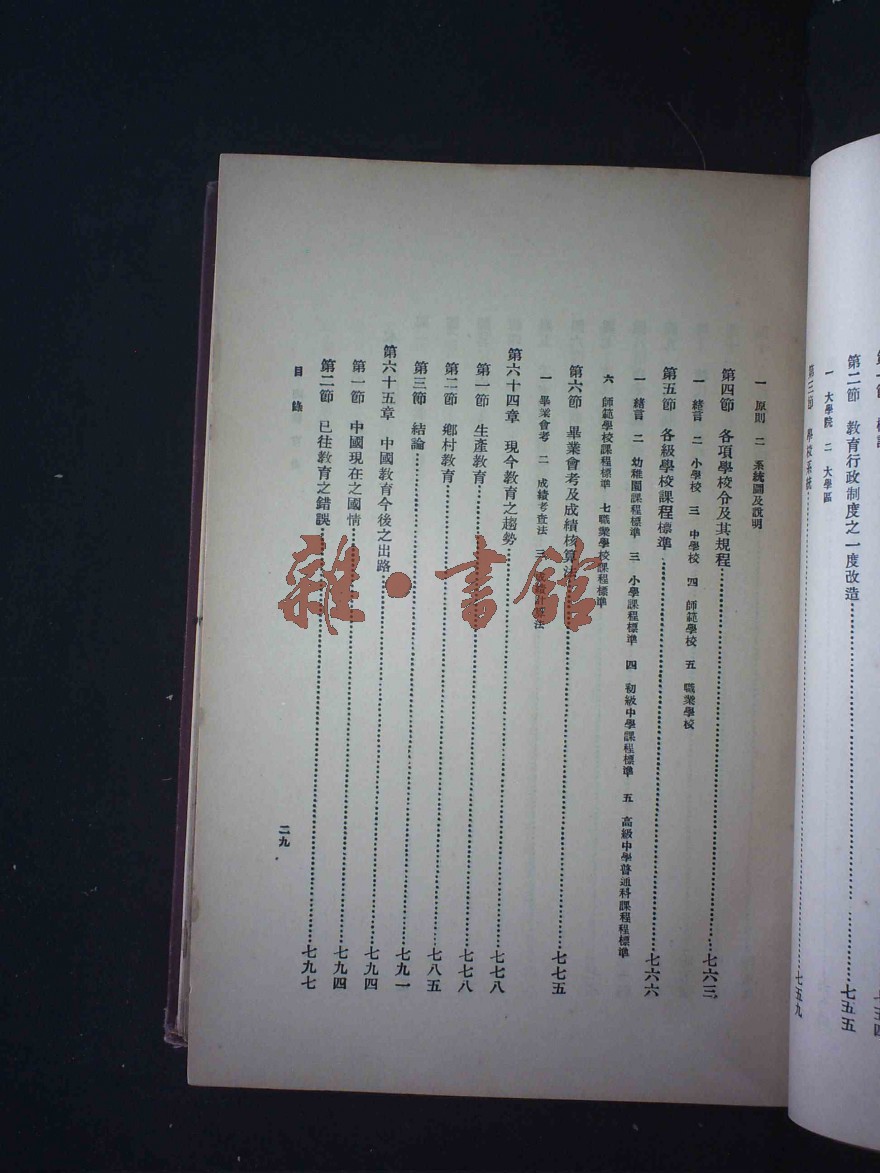 第二節 教育行政制度之一度改造……七五五
一 大學院 二 大學區
第三節 學校系統……七五九
一 原則 二 系統圖及說明
第四節 各項學校令及其規程……七六三
一 緒言 二 小學校 三 中學校 四 師範學校 五 職業學校
第五節 各級學校課程標準……七六六
一 緒言 二 幼稚園課程標準 三 小學課程標準 四 初級中學課程標準 五 高級中學普通科課程標準
六 師範學校課程標準 七 職業學校課程標準
第六節 畢業會考及成績核算法……七七五
一 畢業會考 二 成績考查法 三
第六十四章 現今教育之趨勢……七七八
第一節 生產教育……七七八
第二節 鄉村教育……七八五
第三節 結論……七九一
第六十五章 中國教育今後之出路……七九四
第一節 中國現在之國情……七九四
第二節 已往教育之錯誤……七九七
目錄
二九
雜·書館